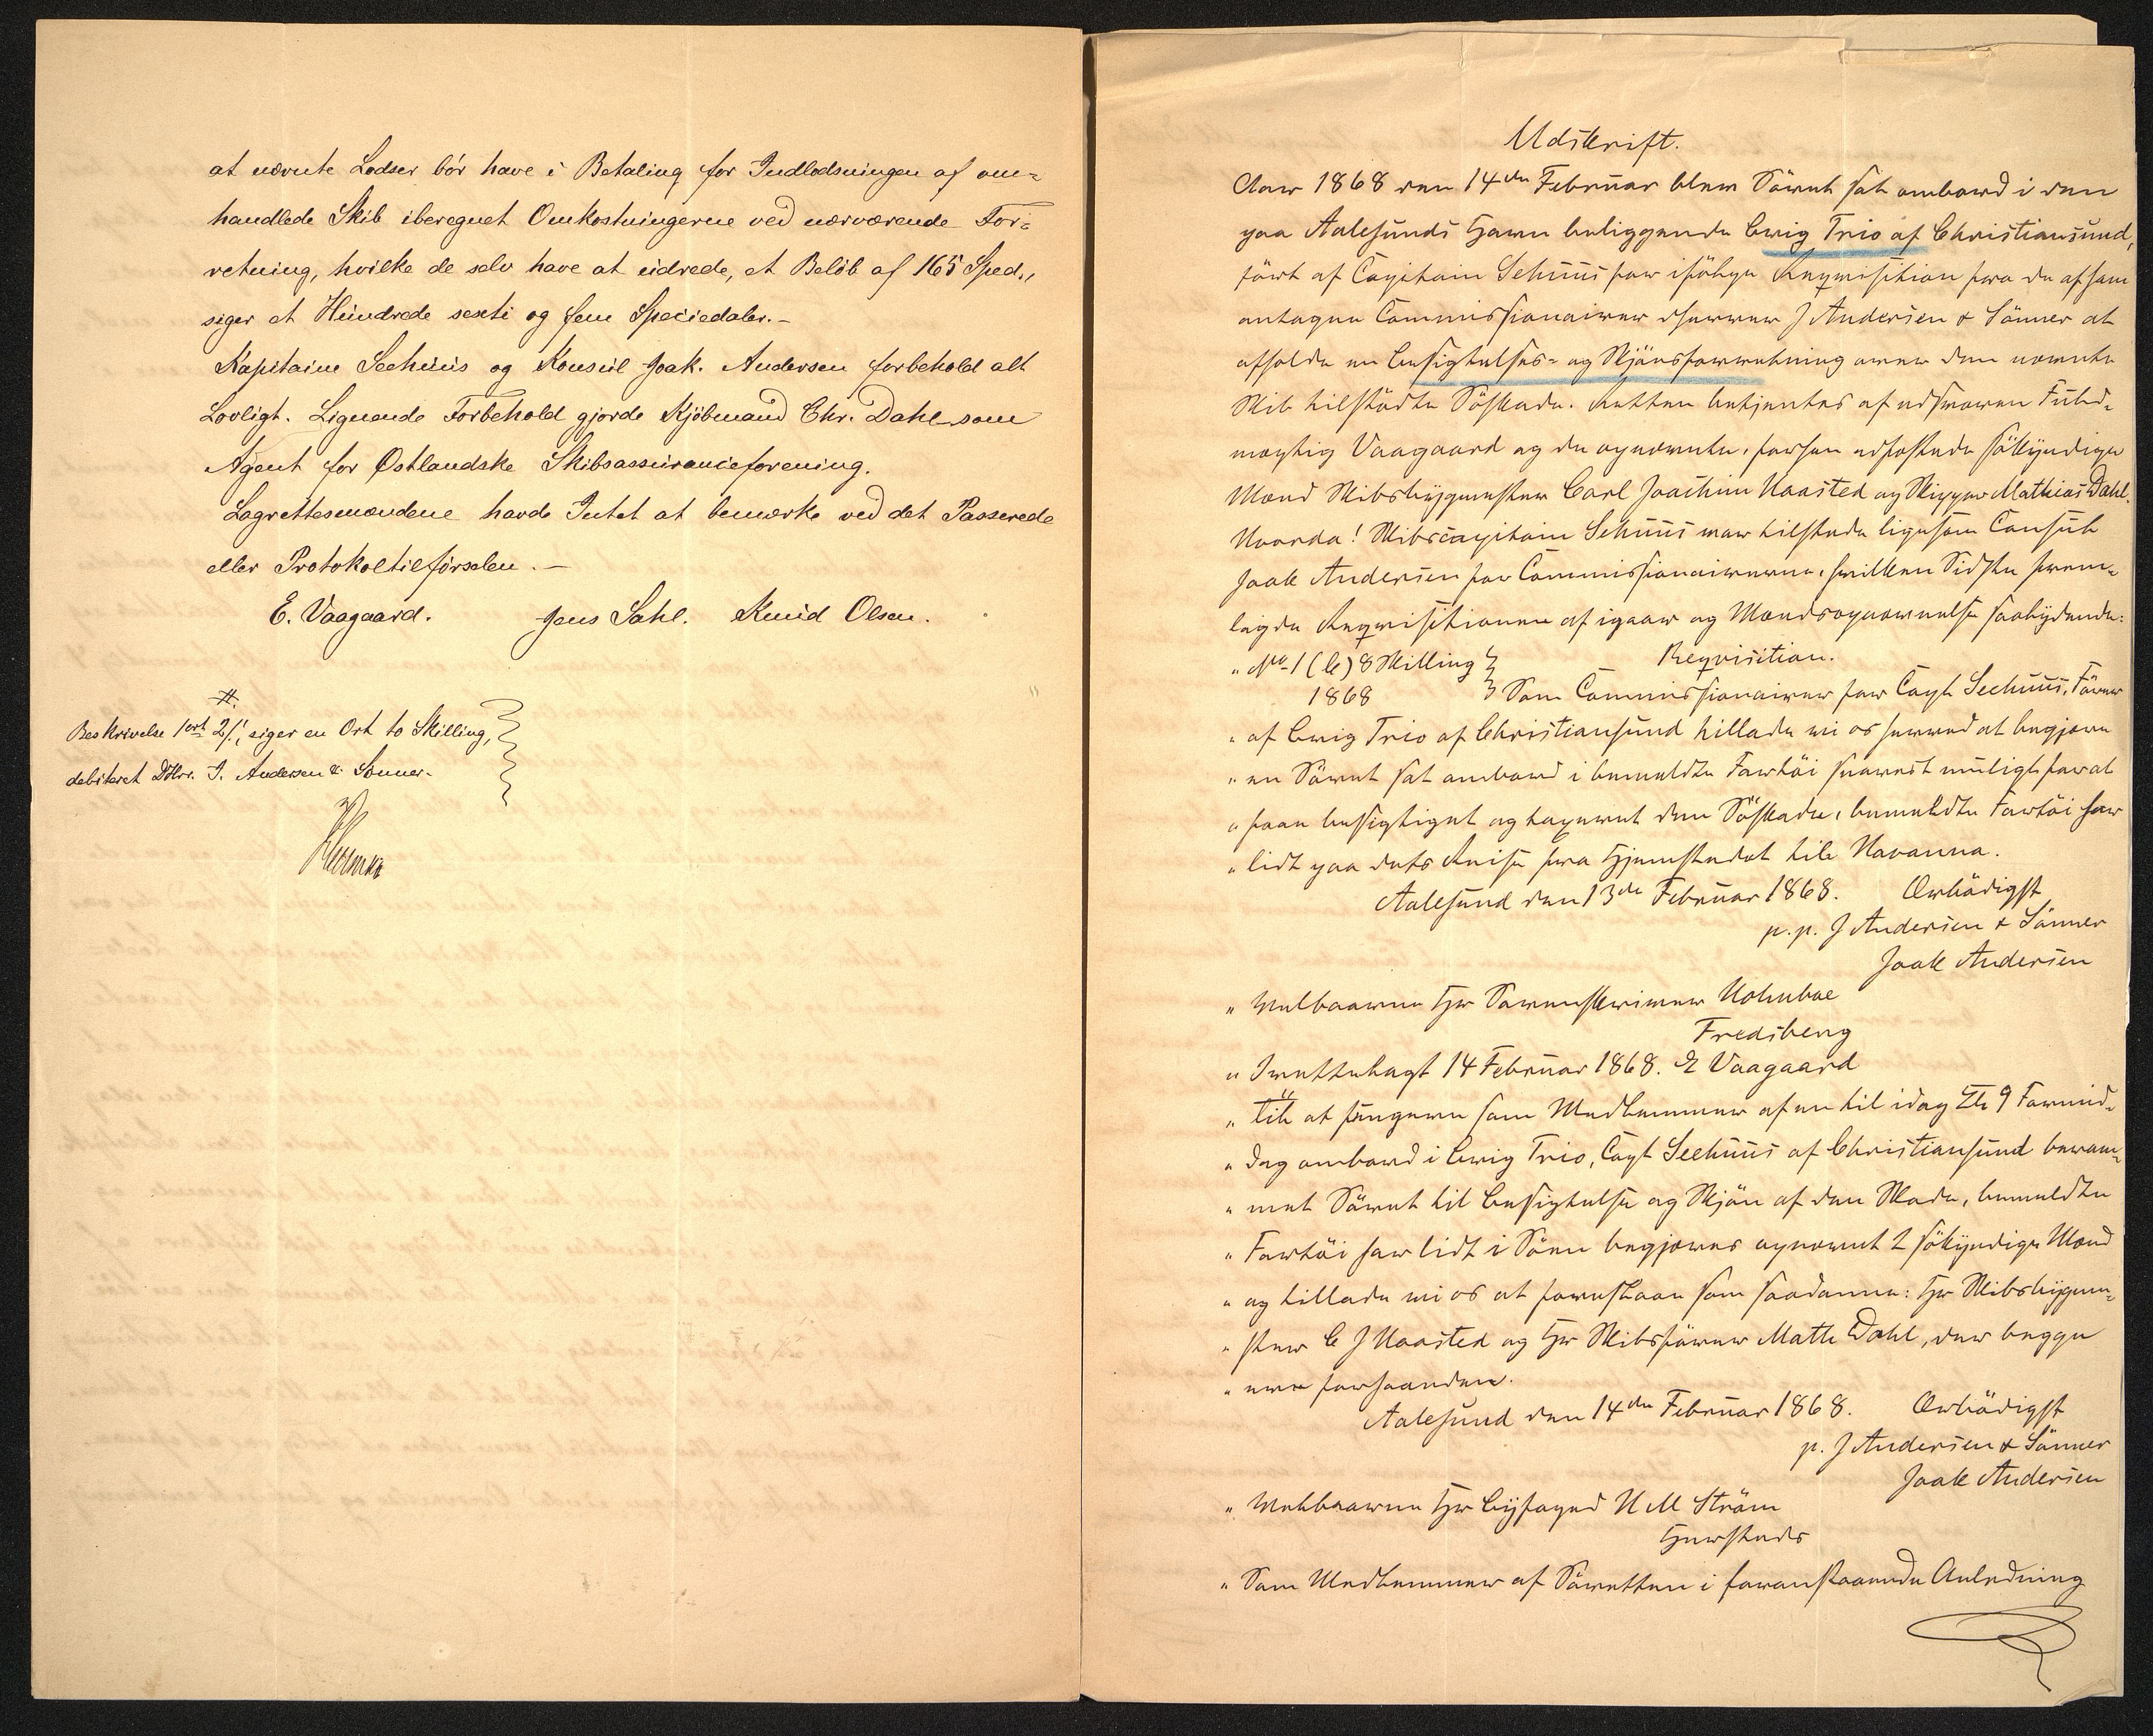 at nævnte Lodser bör have i Betaling for Indlodsningen af om-
handlede Skib iberegnet Omkostningerne ved nærværende For-
retning, hvilke de selv have at udrede, et Belöb af 165 Spd.,
siger et Hundrede sexti og fem Speciedaler.-
Kapitaine Seehuus og Konsul Joak. Andersen forbeholdt alt
Lovligt. Lignende Forbehold gjorde Kjöbmand Chr. Dahl som
Agent for Østlandske Skibsassuranceforening.
Lagrettesmændene havde Intet at bemærke ved det Passerede
eller Protokoltilförselen.-
E. Vaagaard. Jens Dahl. Knud Olsen.
Beskrivelse 1 ort 2 s., siger en Ort to Skilling,
debiteret DHrr. J. Andersen & Sönner.
Udskrift.
Aar 1868 den 14de Februar blev Söret sat ombord i den
paa Aalesunds Havn beliggende Brig Trio af Christiansund,
fört af Capitain Sehuus for ifölge Reqvisition fra de af ham
antagne Commissionairer dHerrer J Andersen & Sönner at
afholde en Besigtelses- og Skjönsforretning over den nævnte
Skib tilstödte Söskade. Retten betjentes af edsvoren Fuld-
mægtig Vaagaard og de opnævnte, forhen edfæstede sökyndige
Mænd Skibsbyggmester Carl Joachim Naasted og Skipper Mathias Dahl.
Hvorda! Skibscapitain Sehuus var tilstede ligesom Consul
Joak Andersen for Commissionairerne, hvilken Sidste frem-
lagde Reqvisitionen af igaar og Mændsopnævnelse saalydende:
" No 1 (C) 8 Skilling Reqvisition.
1868 Som Commissionairer for Capt Seehuus, Förer
" af Brig Trio af Christiansund tillade vi os herved at begjære
" en Söret sat ombord i bemeldte Fartöi snarest muligt for at
" faae besigtiget og taxeret den Söskade, bemeldte Fartöi har
" lidt paa dets Reise fra Hjemstedet til Havanna.
Aalesund den 13de Februar 1868. Ærbödigst
p.p. J Andersen & Sönner
Joak Andersen
" Velbaarne Hr Sorenskriver Holmboe
Fredsberg
" Iretttelagt 14 Februar 1868. E Vaagaard
" Til at fungere som Medlemmer af en til idag Kl 9 Formid-
" dag ombord i Brig Trio, Capt Seehuus af Christiansund beram-
" met Söret til Besigtelse og Skjön af den Skade, bemeldte
" Fartöi har lidt i Söen begjæres opnævnt 2 sökyndige Mænd
" og tillade vi os at foreslaae som saadanne: Hr Skibsbyggme-
" ster C J Naasted og Hr Skibsförer Maths Dahl, der begge
" ere forhaanden.
Aalesund den 14de Februar 1868. Ærbödigst
p. J Andersen & Sönner
Joak Andersen
" Velbaarne Hr Byfoged H M Ström
Hersteds
" Som Medlemmer af Söretten i foranstaaende Anledning